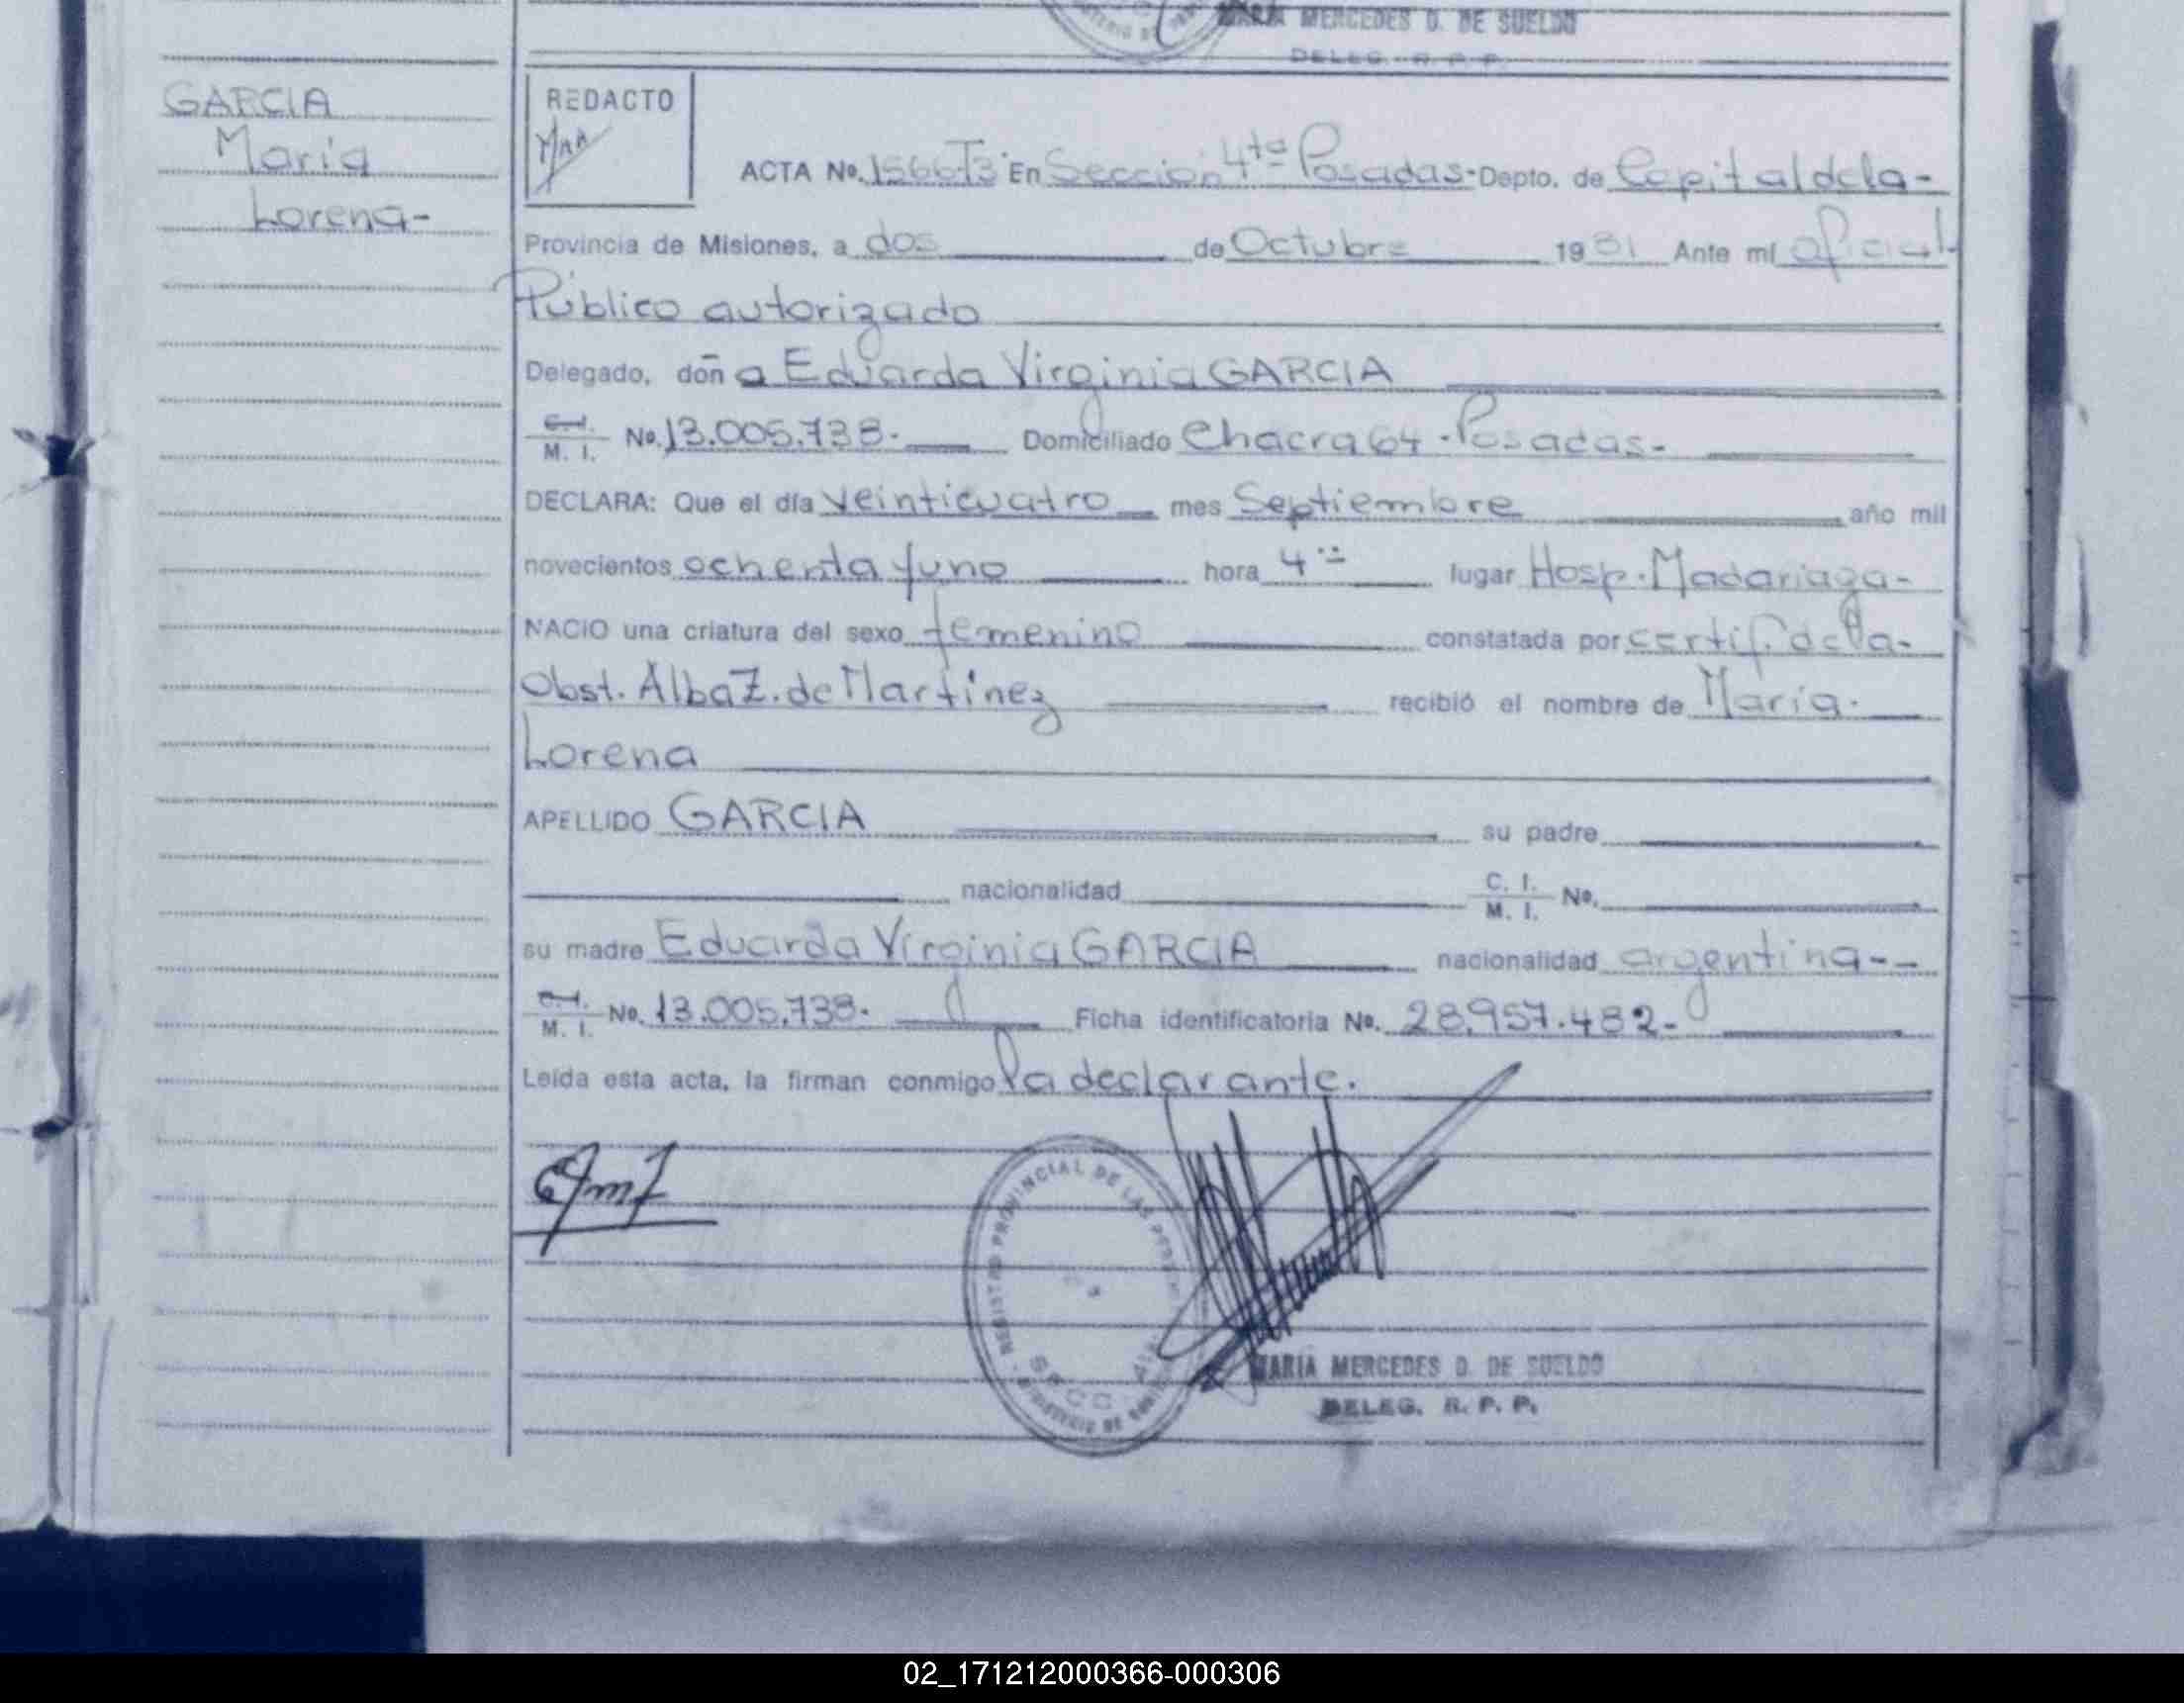 MARIA MERCEDES D. DE SUELDO
DELEG. R. P. P.
GARCIA
Maria
Lorena-
REDACTO
ACTA No. 1566T3 En Sección 4ta Posadas- Depto. de Capital de la-
Provincia de Misiones, a dos de Octubre 1981 Ante mí oficial-
Público autorizado
Delegado, doña Eduarda Virginia GARCIA
C.I. M. I. No. 13.005.738.- Domiciliado Chacra 64 - Posadas.-
DECLARA: Que el día veinticuatro mes Septiembre año mil
novecientos ochenta y uno hora 4 lugar Hosp. Madariaga-
NACIO una criatura del sexo femenino constatada por certif. de la-
Obst. Alba Z. de Martínez recibió el nombre de María-
Lorena
APELLIDO GARCIA su padre
nacionalidad C. I. M. I. No.
su madre Eduarda Virginia GARCIA nacionalidad argentina--
C.I. M. I. No. 13.005.738.- Ficha identificatoria No. 28.957.482-
Leída esta acta, la firman conmigo la declarante.
REGISTRO PROVINCIAL DE LAS PERSONAS
MARIA MERCEDES D. DE SUELDO
DELEG. R. P. P.
02_171212000366-000306